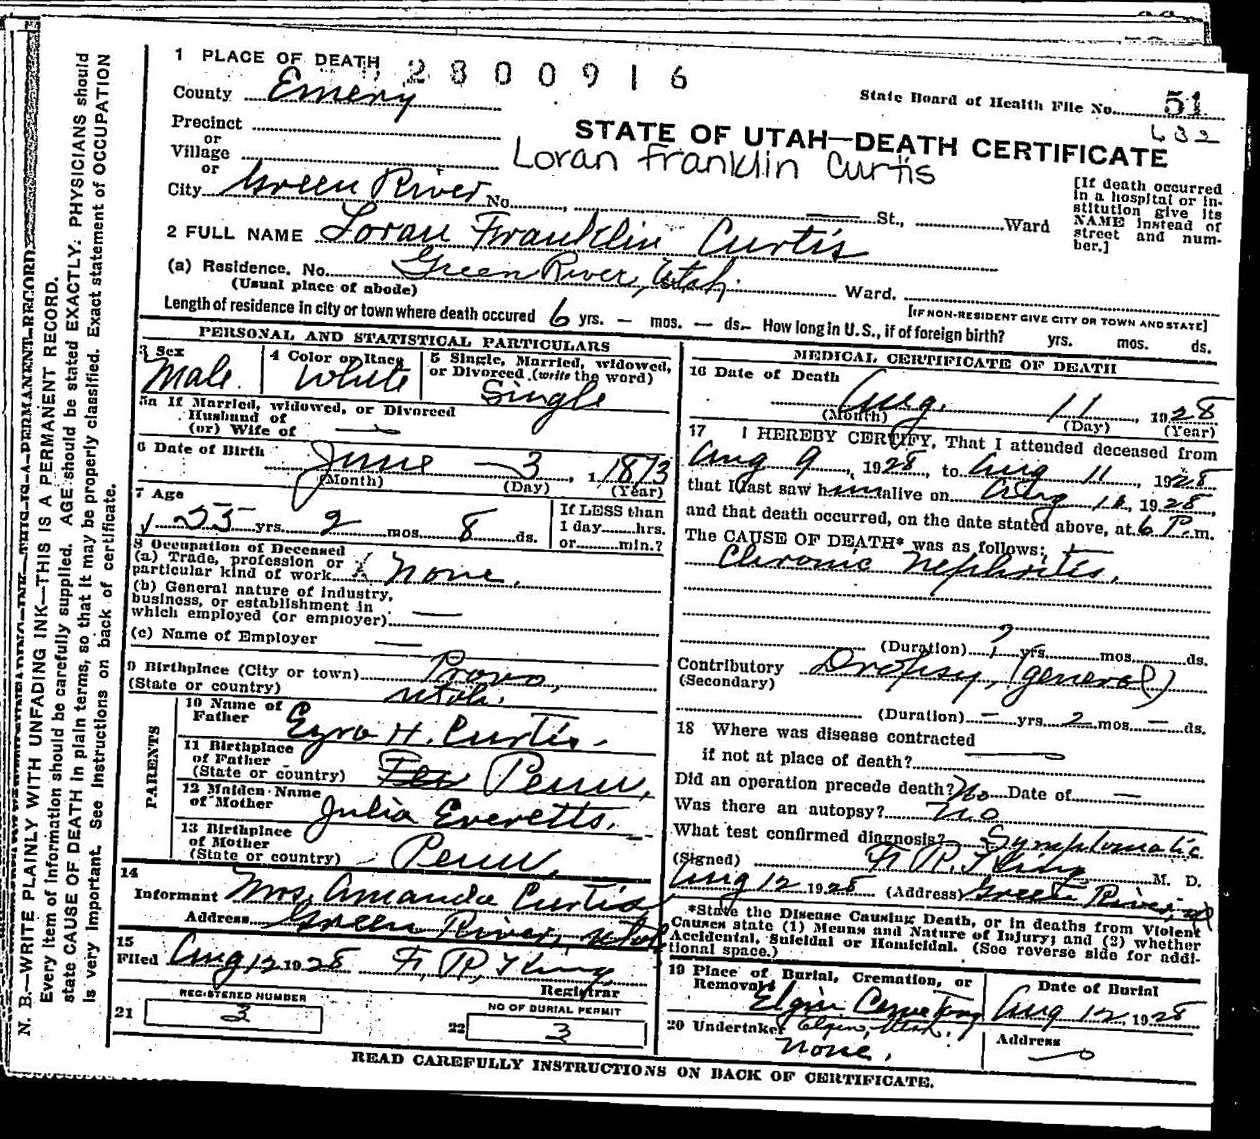 1 PLACE OF DEATH
2800916
County Emery
State Board of Health File No. 51
632
Precinct
or
Village
or
STATE OF UTAH—DEATH CERTIFICATE
Loran Franklin Curtis
City Green River No. , St., Ward
[If death occurred in a hospital or in-
stitution give its
NAME instead of
street and num-
ber.]
2 FULL NAME Loran Franklin Curtis
(a) Residence. No. Green River, Utah. Ward.
(Usual place of abode)
[IF NON-RESIDENT GIVE CITY OR TOWN AND STATE]
Length of residence in city or town where death occured 6 yrs. — mos. — ds. How long in U. S., if of foreign birth? yrs. mos. ds.
PERSONAL AND STATISTICAL PARTICULARS
3 Sex
Male.
4 Color or Race
White
5 Single, Married, widowed,
or Divorced (write the word)
Single
5a If Married, widowed, or Divorced
Husband of
(or) Wife of —
6 Date of Birth
June — 3, 1873
(Month) (Day) (Year)
7 Age
55 yrs. 2 mos. 8 ds.
If LESS than
1 day hrs.
or min.?
8 Occupation of Deceased
(a) Trade, profession or
particular kind of work None.
(b) General nature of industry,
business, or establishment in
which employed (or employer) —
(c) Name of Employer —
9 Birthplace (City or town) Provo,
(State or country) Utah.
PARENTS
10 Name of
Father Ezra H. Curtis
11 Birthplace
of Father
(State or country) Penn,
12 Maiden Name
of Mother Julia Everetts.
13 Birthplace
of Mother
(State or country) Penn,
14
Informant Mrs, Amanda Curtis
Address Green River, Utah
15
Filed Aug 12 1928 F. R. King,
Registrar
REGISTERED NUMBER
21 3
NO OF BURIAL PERMIT
22 3
MEDICAL CERTIFICATE OF DEATH
16 Date of Death
Aug. 11, 1928
(Month) (Day) (Year)
17 I HEREBY CERTIFY, That I attended deceased from
Aug 9, 1928, to Aug 11, 1928
that I last saw him alive on Aug 1, 1928
and that death occurred, on the date stated above, at 6 P.m.
The CAUSE OF DEATH* was as follows:
Chronic Nephritis.
(Duration) ? yrs. mos. ds.
Contributory Dropsy, (general)
(Secondary)
(Duration) — yrs. 2 mos. — ds.
18 Where was disease contracted
if not at place of death? —
Did an operation precede death? No Date of —
Was there an autopsy? No
What test confirmed diagnosis? Symptomatic
(Signed) F. R. King M. D.
Aug 12 1928 (Address) Green River, Ut
*State the Disease Causing Death, or in deaths from Violent
Causes state (1) Means and Nature of Injury; and (2) whether
Accidental, Suicidal or Homicidal. (See reverse side for addi-
tional space.)
19 Place of Burial, Cremation, or
Removal Elgin Cemetary
Elgin, Utah.
Date of Burial
Aug 12, 1928
20 Undertaker
None.
Address
—
READ CAREFULLY INSTRUCTIONS ON BACK OF CERTIFICATE.
N. B.—WRITE PLAINLY WITH UNFADING INK—THIS IS A PERMANENT RECORD.
Every item of information should be carefully supplied. AGE should be stated EXACTLY. PHYSICIANS should
state CAUSE OF DEATH in plain terms, so that it may be properly classified. Exact statement of OCCUPATION
is very important. See instructions on back of certificate.